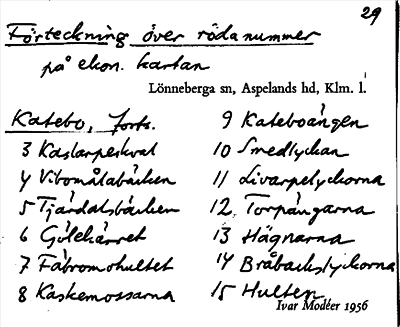 29
Förteckning över röda nummer
på ekon. kartan
Lönneberga sn, Aspelands hd, Klm. l.
Katebo, forts.
3 Kaslarpeskvat
4 Vibomålabäcken
5 Tjärdalsbäcken
6 Gölekärret
7 Fäbromohultet
8 Kaskemossarna
9 Kateboängen
10 Smedlyckan
11 Livarpelyckorna
12 Torpängarna
13 Hägnarna
14 Bråbackslyckorna
15 Hulten
Ivar Modéer 1956